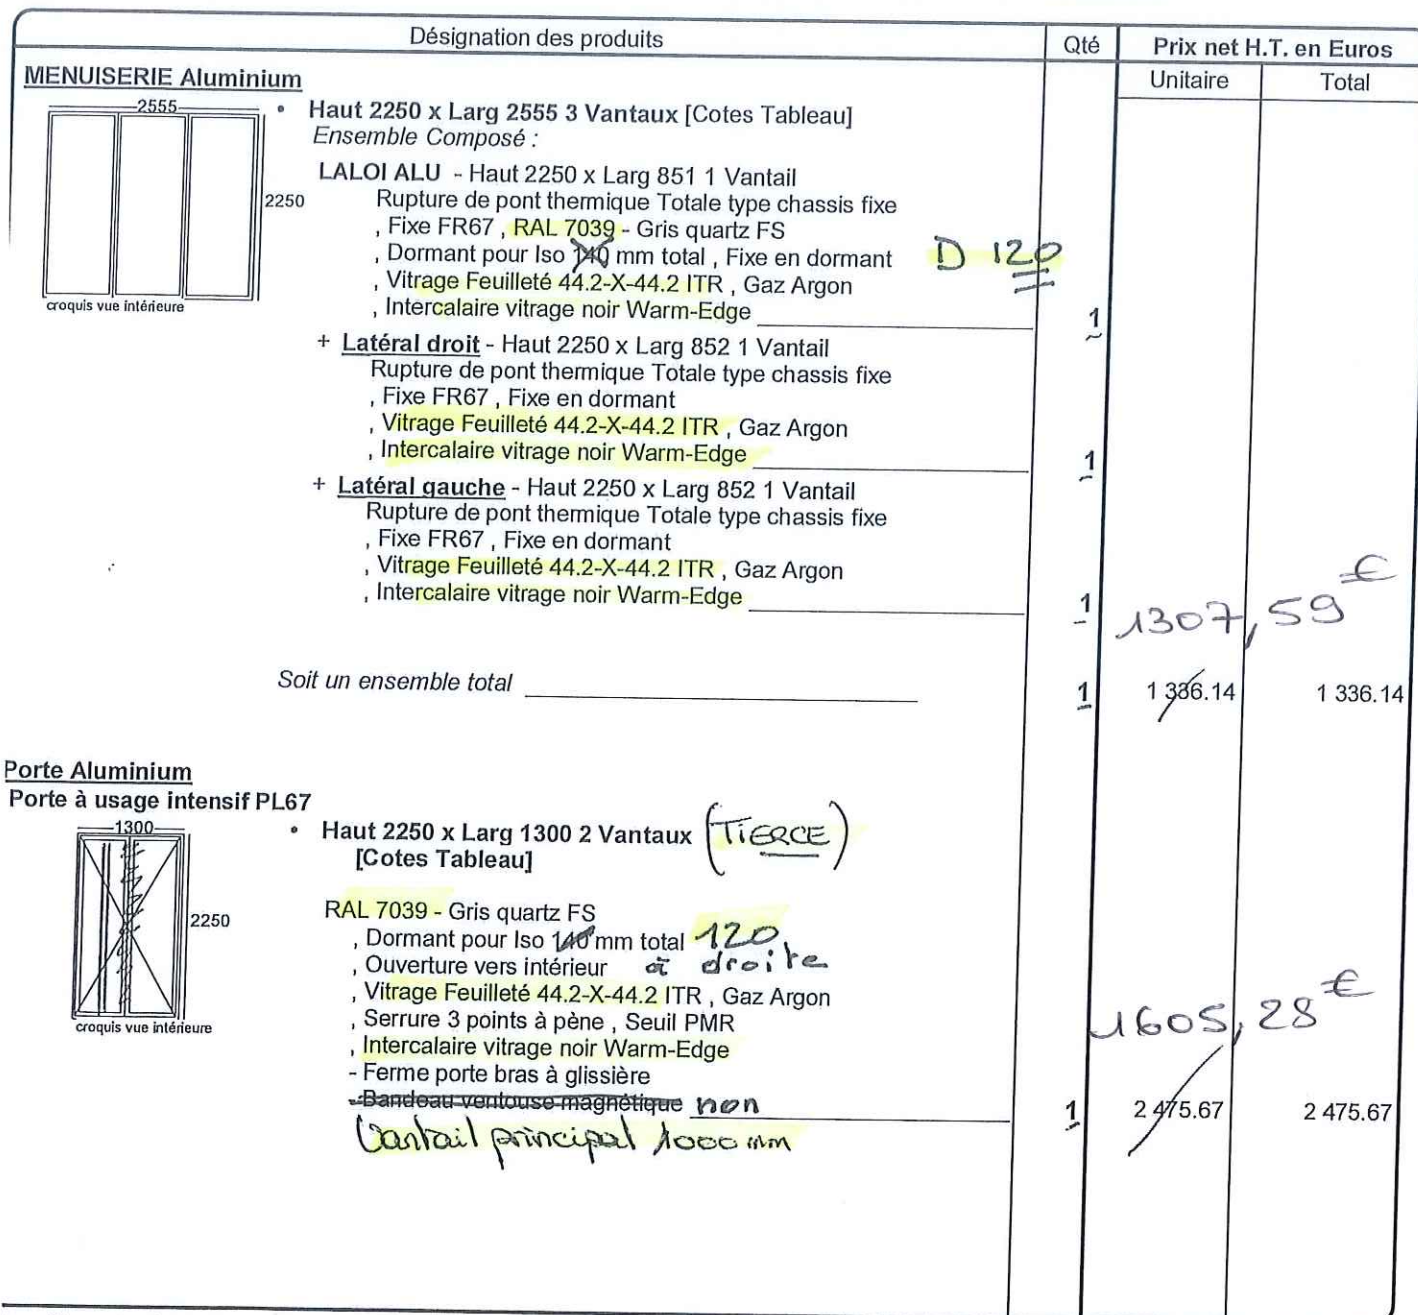 Désignation des produits
Qté
Prix net H.T. en Euros
Unitaire
Total
MENUISERIE Aluminium
2555
2250
croquis vue intérieure
• Haut 2250 x Larg 2555 3 Vantaux [Cotes Tableau]
Ensemble Composé :
LALOI ALU - Haut 2250 x Larg 851 1 Vantail
Rupture de pont thermique Totale type chassis fixe
, Fixe FR67 , RAL 7039 - Gris quartz FS
, Dormant pour Iso 140 mm total , Fixe en dormant D 120
, Vitrage Feuilleté 44.2-X-44.2 ITR , Gaz Argon
, Intercalaire vitrage noir Warm-Edge 1
+ Latéral droit - Haut 2250 x Larg 852 1 Vantail
Rupture de pont thermique Totale type chassis fixe
, Fixe FR67 , Fixe en dormant
, Vitrage Feuilleté 44.2-X-44.2 ITR , Gaz Argon
, Intercalaire vitrage noir Warm-Edge 1
+ Latéral gauche - Haut 2250 x Larg 852 1 Vantail
Rupture de pont thermique Totale type chassis fixe
, Fixe FR67 , Fixe en dormant
, Vitrage Feuilleté 44.2-X-44.2 ITR , Gaz Argon
, Intercalaire vitrage noir Warm-Edge 1
1307,59 €
Soit un ensemble total 1 1 336.14 1 336.14
Porte Aluminium
Porte à usage intensif PL67
1300
2250
croquis vue intérieure
• Haut 2250 x Larg 1300 2 Vantaux (TIERCE)
[Cotes Tableau]
RAL 7039 - Gris quartz FS
, Dormant pour Iso 140 mm total 120
, Ouverture vers intérieur à droite
, Vitrage Feuilleté 44.2-X-44.2 ITR , Gaz Argon
, Serrure 3 points à pène , Seuil PMR
, Intercalaire vitrage noir Warm-Edge
1605,28 €
- Ferme porte bras à glissière
- Bandeau ventouse magnétique non 1 2 475.67 2 475.67
Vantail principal 1000 mm